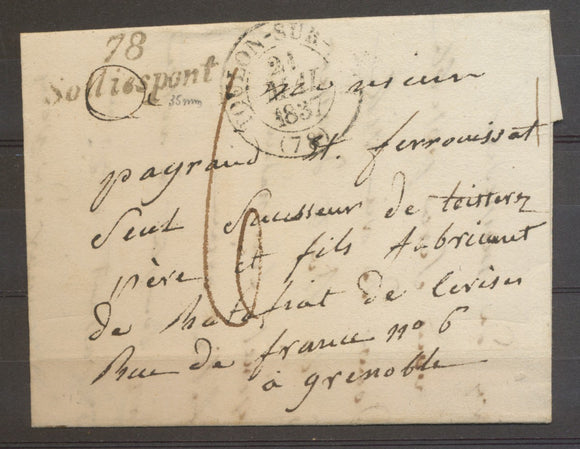 78
Solliespont
35mm
TOULON-SUR-
21
MAI
1837
(78)
Monsieur
pagraud et ferrouissat
Seul Sucesseur de teisseire
père et fils fabricant
de Ratafiat de Cerises
Rue de france no 6
à grenoble
6